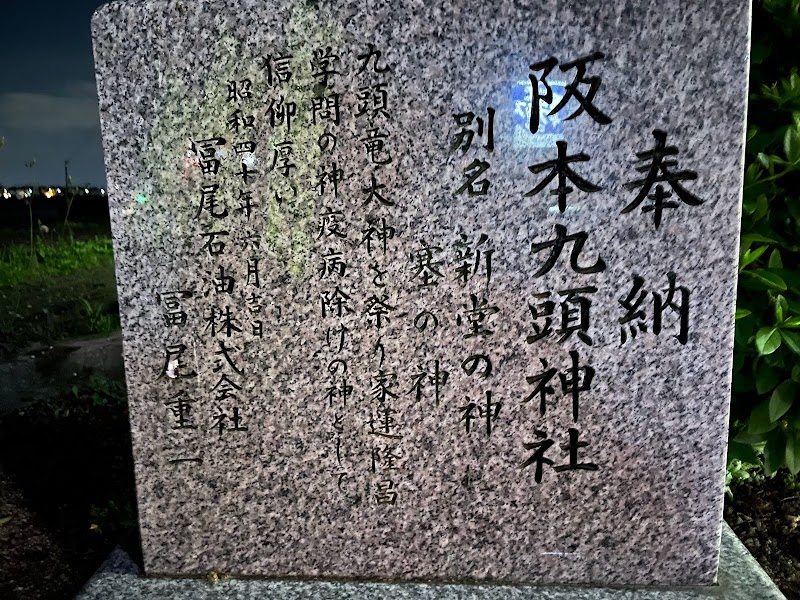 奉納
阪本九頭神社
別名 新堂の神
塞の神
九頭竜大神を祭り家運隆昌
学問の神疫病除けの神として
信仰厚い
昭和四十年六月吉日
冨尾石油株式会社
冨尾重一